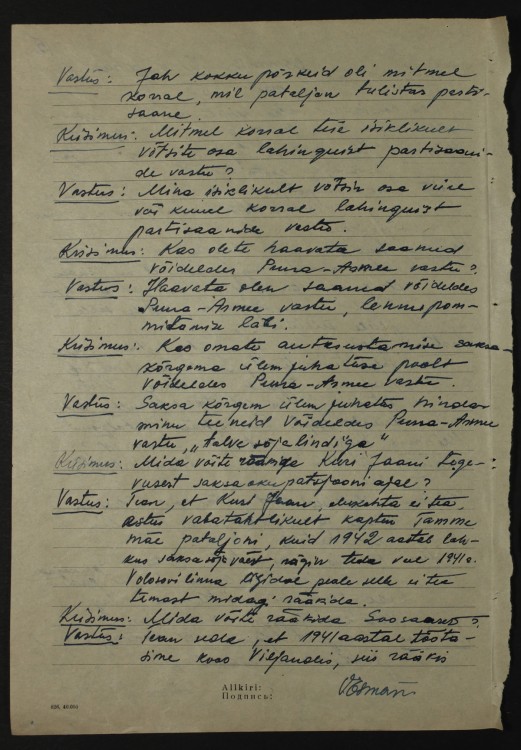 Vastus: Jah kokkupõrkeid oli mitmel
korral, mil pataljon tulistas parti-
saane.
Küsimus: Mitmel korral teie isiklikult
võtsite osa lahinguist partisaani-
de vastu?
Vastus: Mina isiklikult võtsin osa viiel
või kuuel korral lahinguist
partisaanide vastu.
Küsimus: Kas olete haavata saanud
võideldes Puna-Armee vastu?
Vastus: Haavata olen saanud võideldes
Puna-Armee vastu, lennupom-
mitamise läbi.
Küsimus: Kas omate autasustamise saksa-
kõrgema ülemjuhatuse poolt
võideldes Puna-Armee vastu.
Vastus: Saksa kõrgem ülemjuhatus hindas
minu teeneid võideldes Puna-Armee
vastu "talve sõja lindiga"
Küsimus: Mida võite rääkida Kuri Jaani tege-
vusest saksa okupatsiooni ajal?
Vastus: Tean, et Kuri Jaan, elukohta ei tea,
astus vabatahtlikult kapten Tamme
mäe pataljoni, kuid 1942 aastal lah-
kus saksa sõjaväest, nägin teda veel 1941a.
Volosovi linna ligidal peale selle ei tea
temast midagi rääkida.
Küsimus: Mida võite rääkida Soosaarest?
Vastus: Tean seda, et 1941 aastal tööta-
sime koos Viljandis, siis rääkis
Allkiri:
Подпись: